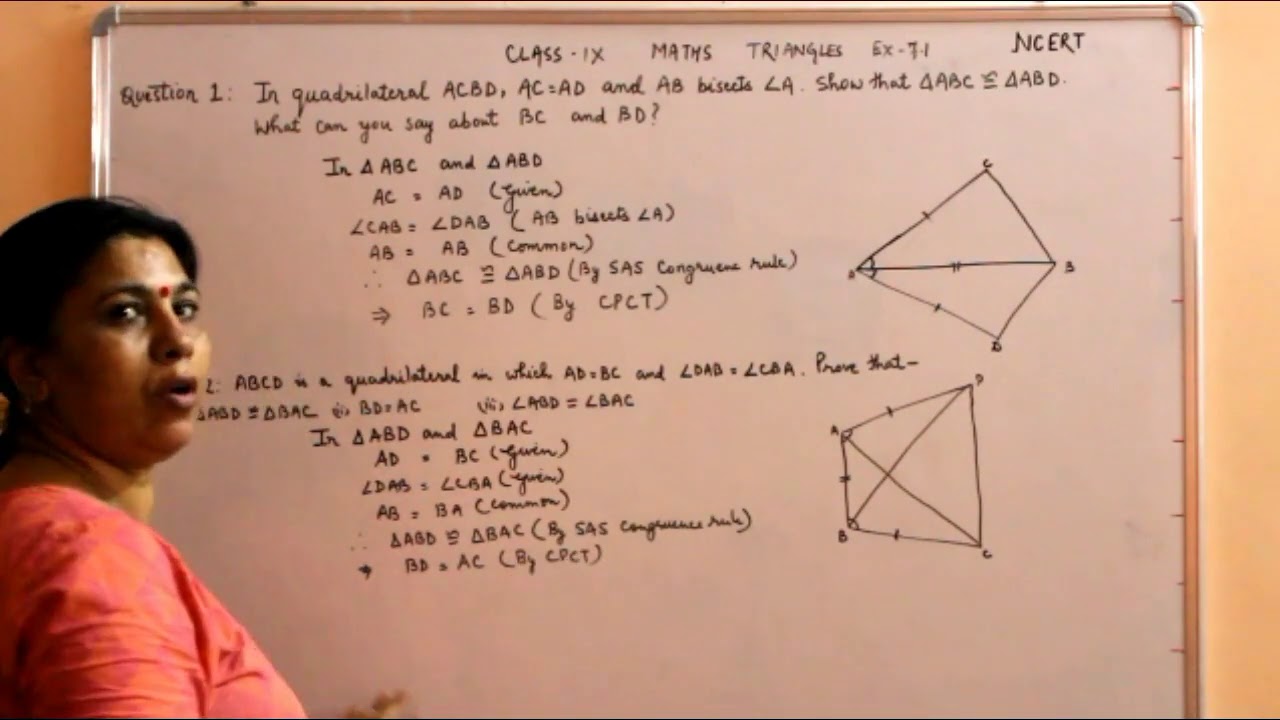 CLASS-IX MATHS TRIANGLES EX-7.1 NCERT
Question 1: In quadrilateral ACBD, AC=AD and AB bisects ∠A. Show that △ABC ≅ △ABD.
What can you say about BC and BD?
In △ABC and △ABD
AC = AD (Given)
∠CAB = ∠DAB (AB bisects ∠A)
AB = AB (Common)
∴ △ABC ≅ △ABD (By SAS Congruence rule)
⇒ BC = BD (By CPCT)
C
B
D
2: ABCD is a quadrilateral in which AD=BC and ∠DAB = ∠CBA. Prove that-
△ABD ≅ △BAC (ii) BD=AC (iii) ∠ABD = ∠BAC
In △ABD and △BAC
AD = BC (Given)
∠DAB = ∠CBA (Given)
AB = BA (Common)
∴ △ABD ≅ △BAC (By SAS Congruence rule)
⇒ BD = AC (By CPCT)
D
A
B
C